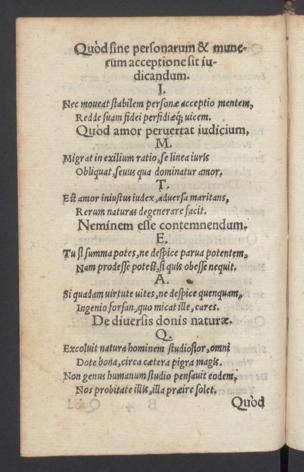 Quòd sine personarum & mune-
rum acceptione sit iu-
dicandum.
I.
Nec moueat stabilem personæ acceptio mentem,
Redde suam fidei perfidiæq; uicem.
Quòd amor peruertat iudicium,
M.
Migrat in exilium ratio, se linea iuris
Obliquat, seuus qua dominatur amor.
T.
Est amor iniustus iudex, aduersa maritans,
Rerum naturas degenerare facit.
Neminem esse contemnendum.
E.
Tu si summa potes, ne despice parua potentem,
Nam prodesse potest, si quis obesse nequit.
A.
Si quadam uirtute uites, ne despice quenquam,
Ingenio forsan, quo micat ille, cares.
De diuersis donis naturæ.
Q.
Excoluit natura hominem studiosior, omni
Dote bona, circa cætera pigra magis.
Non genus humanum studio pensauit eodem,
Nos probitate illis, illa præire solet.
Quòd